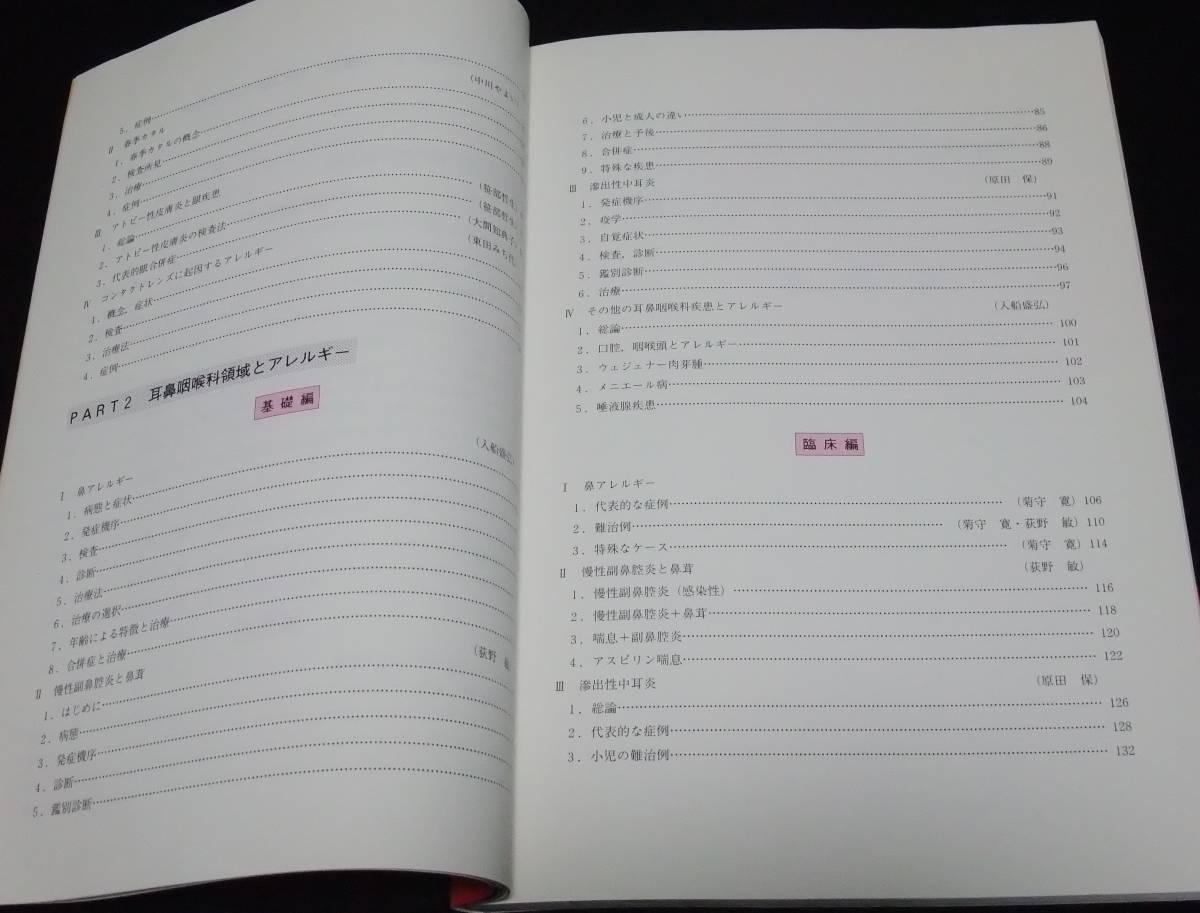 5．症例
(中川やよい)
Ⅱ　春季カタル
1．春季カタルの概念
2．検査所見
3．治療
4．症例
Ⅲ　アトピー性皮膚炎と眼疾患
1．総論 (笹部哲生)
2．アトピー性皮膚炎の検査法 (笹部哲生)
3．代表的眼合併症 (大間知典子)
Ⅳ　コンタクトレンズに起因するアレルギー (東田みち代)
1．概念，症状
2．検査
3．治療法
4．症例
PART2　耳鼻咽喉科領域とアレルギー
基礎編
Ⅰ　鼻アレルギー (入船盛弘)
1．病態と症状
2．発症機序
3．検査
4．診断
5．治療法
6．治療の選択
7．年齢による特徴と治療
8．合併症と治療
Ⅱ　慢性副鼻腔炎と鼻茸 (荻野
1．はじめに
2．病態
3．発症機序
4．診断
5．鑑別診断
6．小児と成人の違い 85
7．治療と予後 86
8．合併症 88
9．特殊な疾患 89
Ⅲ　滲出性中耳炎 (原田　保)
1．発症機序 91
2．疫学 92
3．自覚症状 93
4．検査，診断 94
5．鑑別診断 96
6．治療 97
Ⅳ　その他の耳鼻咽喉科疾患とアレルギー (入船盛弘)
1．総論 100
2．口腔，咽喉頭とアレルギー 101
3．ウェジェナー肉芽腫 102
4．メニエール病 103
5．唾液腺疾患 104
臨床編
Ⅰ　鼻アレルギー
1．代表的な症例 (菊守　寛) 106
2．難治例 (菊守　寛・荻野　敏) 110
3．特殊なケース (菊守　寛) 114
Ⅱ　慢性副鼻腔炎と鼻茸 (荻野　敏)
1．慢性副鼻腔炎（感染性） 116
2．慢性副鼻腔炎＋鼻茸 118
3．喘息＋副鼻腔炎 120
4．アスピリン喘息 122
Ⅲ　滲出性中耳炎 (原田　保)
1．総論 126
2．代表的な症例 128
3．小児の難治例 132